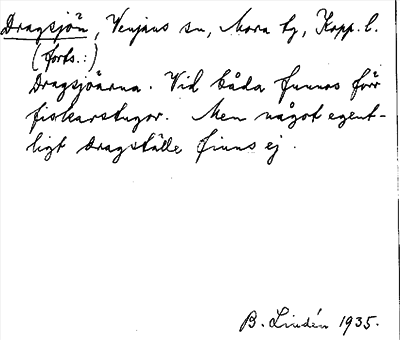 Dragsjön, Venjans sn, Mora tg, Kopp. l.
(forts.:)
Dragsjöarna. Vid båda funnos förr
fiskarstugor. Men något egent-
ligt dragställe finns ej.
B. Lindén 1935.